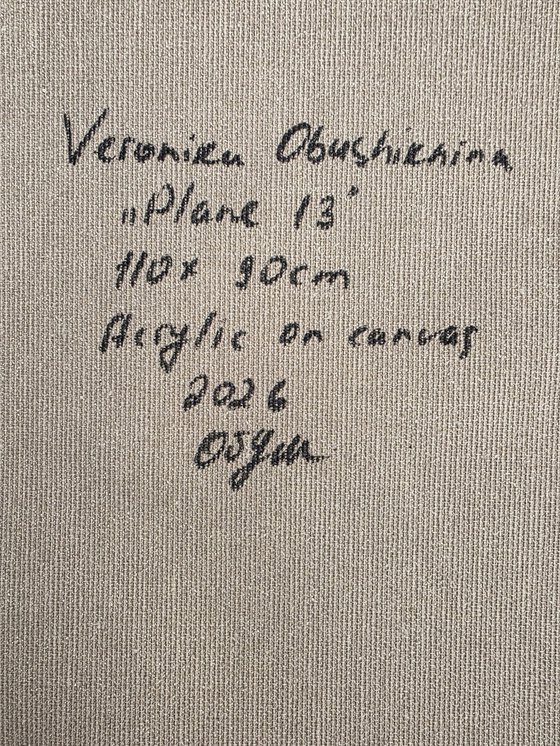 Veronika Obushienina
„Plane 13"
110x 90cm
Acrylic on canvas
2026
Обуш